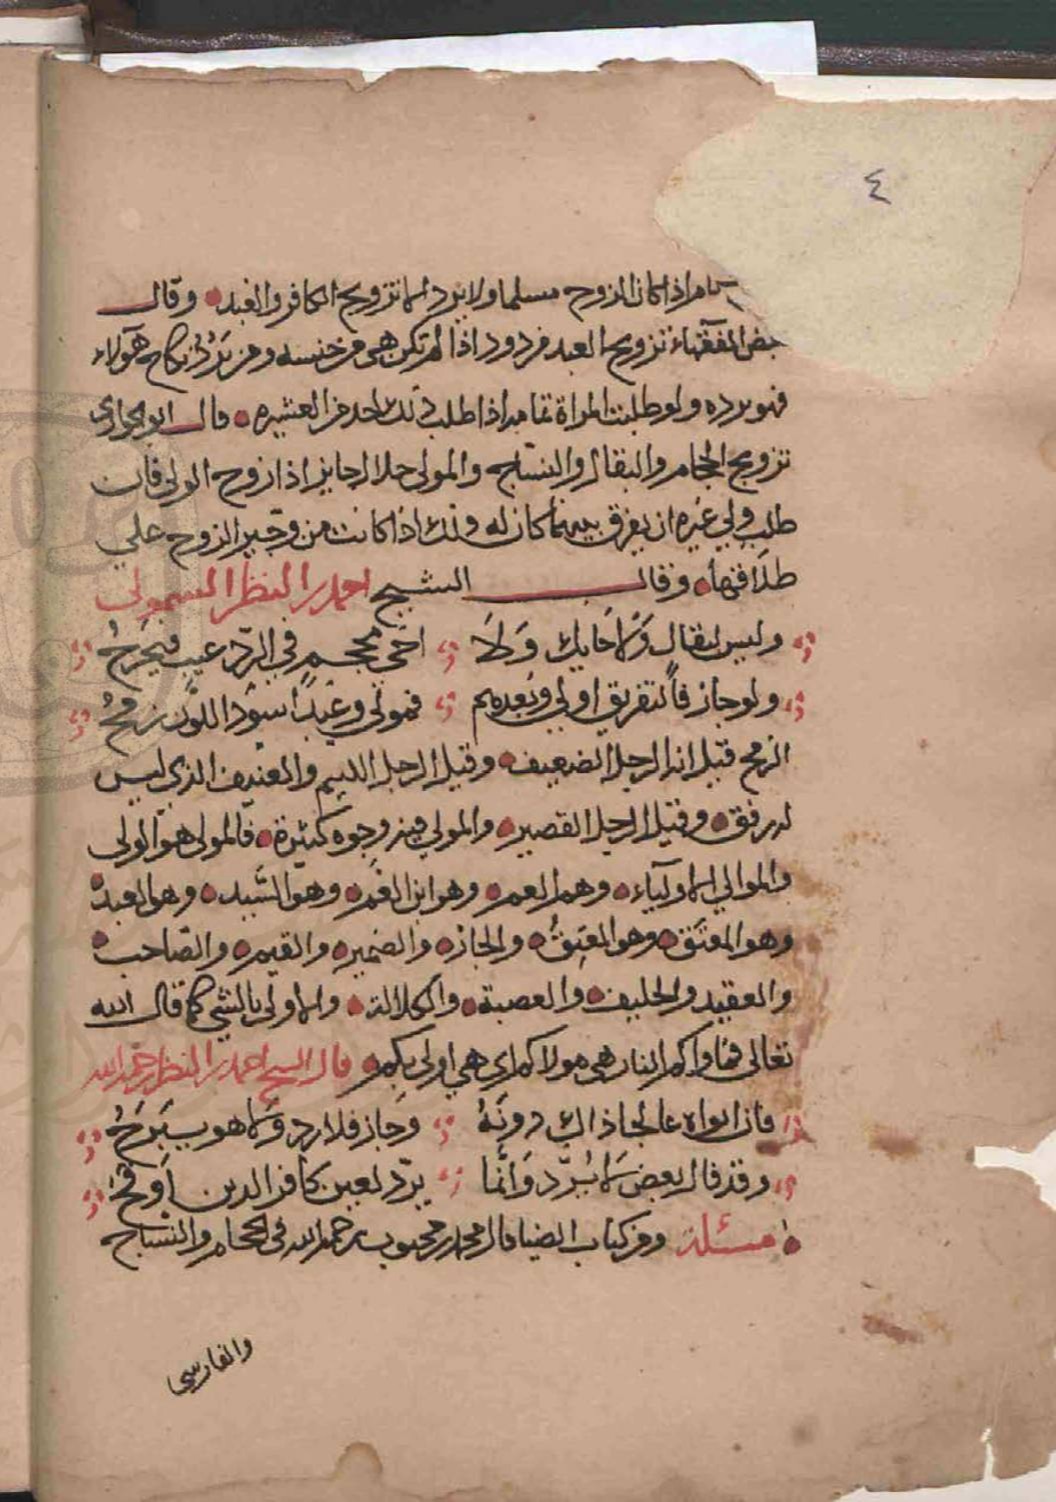 ٤
اذا كان الزوج مسلما ولا يرد الا تزويج الكافر والعبد وقال
بعض الفقهاء تزويج العبد مردود اذا لم تكن هي من جنسه ومن يَرُدُّ نكاح هؤلاء
فهو يرده ولو طلبت المراة تمامه اذا طلب ذلك احد من العشيره قال ابو الحواري
تزويج الحجام والبقال والنساج والمولى حلال جايز اذا زوج الولي فان
طلب ولي غيره ان يفرق بينهما كان له ذلك اذا كانت من وجبر الزوج على
طلاقها وقال الشيخ احمد بن النظر السموألي
وليس لبقال وَلا حايك وَلَا اخي محجم في الرّد عيب فيجرحُ
ولو جاز فالتفريق اولى وبعدهم فمولى وعبدًا اسود اللون زمحُ
الزمح قيل انه الرجل الضعيف وقيل الرجل اللييم والعنيف الذي ليس
له رفق وقيل الرجل القصير والمولى فيه وجوه كثيرة فالمولى هو الولي
والموالي الاولياء وهم العم وهو ابن العم وهو السَّيد وهو العبد
وهو المعتَق وهو المعتِقُ والجار والضمير والقيم والصاحب
والعقيد والحليف والعصبة والكلالة والاولى بالشي كما قال الله
تعالى فماواكم النار هي مولاكم اي هي اولى بكم قال الشيخ احمد بن النظر رحمه الله
فان ابواه عالجا ذاك دونَهُ وَجاز فلا رد وَلا هو يبَرحُ
وقد قال بعض لَا يُرَدّ وَانّما يردّ لعين كافر الدين اَوقحُ
مسئلة ومن كتاب الضيا قال محمد بن محبوب رحمه الله في الحجام والنساج
والفارسي